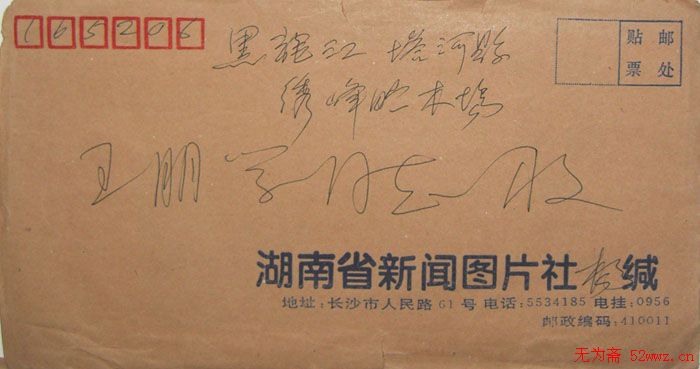 165206
贴邮
票处
黑龙江 塔河县
绣峰贮木场
王朋学同志收
湖南省新闻图片社 缄
地址:长沙市人民路61号 电话:5534185 电挂:0956
邮政编码:410011
无为斋 52wwz.cn